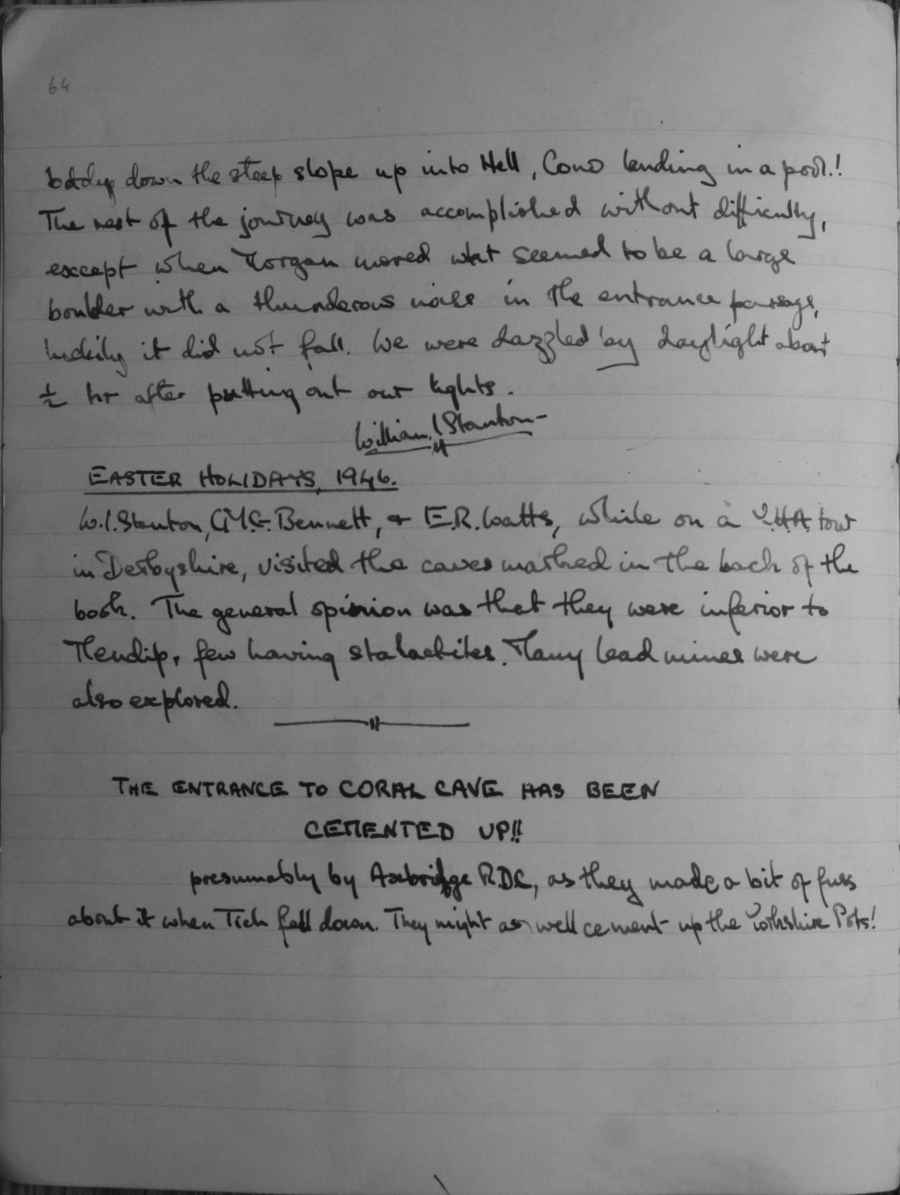 64
bodily down the steep slope up into Hell, Cono landing in a pool.!
The rest of the journey was accomplished without difficulty,
except when Morgan moved what seemed to be a large
boulder with a thunderous noise in the entrance passage,
luckily it did not fall. We were dazzled by daylight about
½ hr after putting out our lights.
William I Stanton
EASTER HOLIDAYS, 1946.
W.I.Stanton, G.M.G. Bennett, & E.R. Watts, while on a Y.H.A. tour
in Derbyshire, visited the caves marked in the back of the
book. The general opinion was that they were inferior to
Mendip, few having stalactites. Many lead mines were
also explored.
THE ENTRANCE TO CORAL CAVE HAS BEEN
CEMENTED UP!!
presumably by Axbridge RDC, as they made a bit of fuss
about it when Tich fell down. They might as well cement up the Yorkshire Pots!